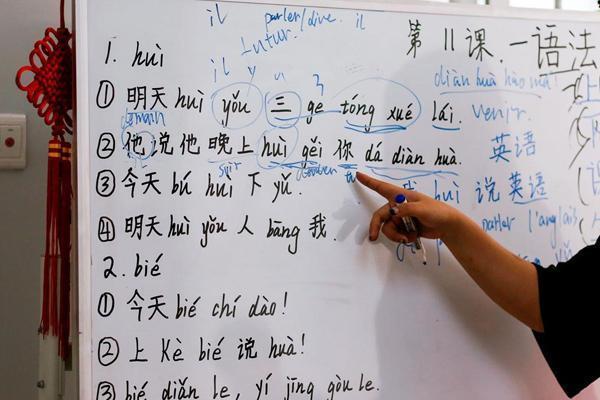 il parler/dire. il
futur.
第 11 课. 一语法
1. huì
il y a
diàn huà hào mǎ!
① 明天 huì yǒu 三 ge tóng xué lái. venir.
demain
② 他说他晚上 huì gěi 你 dá diàn huà. 英语
soir
tu
③ 今天 bú huì 下 yǔ. huì 说英语
parler l'anglais
④ 明天 huì yǒu 人 bāng 我.
2. bié
① 今天 bié chí dào!
② 上 Kè bié 说 huà!
③ bié diǎn le, yí jīng gòu le.